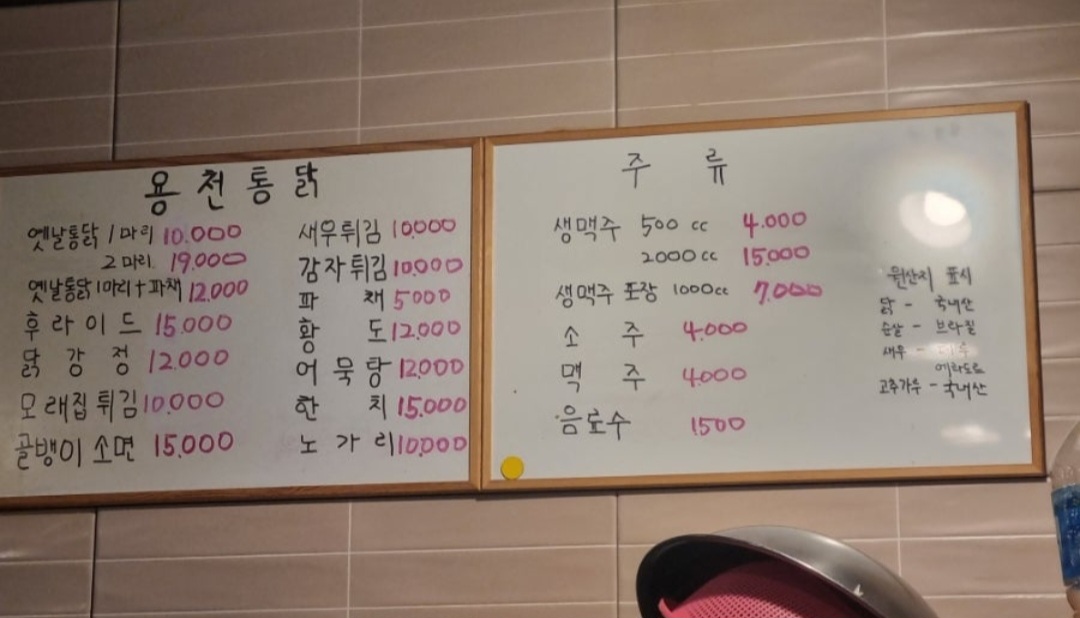 용천통닭
옛날통닭 1마리 10.000
2마리 19.000
옛날통닭1마리+파채 12.000
후라이드 15.000
닭강정 12.000
모래집튀김 10.000
골뱅이소면 15.000
새우튀김 10.000
감자튀김 10.000
파채 5000
황도 12.000
어묵탕 12000
한치 15.000
노가리 10.000
주류
생맥주 500cc 4.000
2000cc 15.000
생맥주 포장 1000cc 7.000
소주 4.000
맥주 4.000
음료수 1500
원산지 표시
닭 - 국내산
순살 - 브라질
새우 -
에콰도르
고추가루 - 국내산